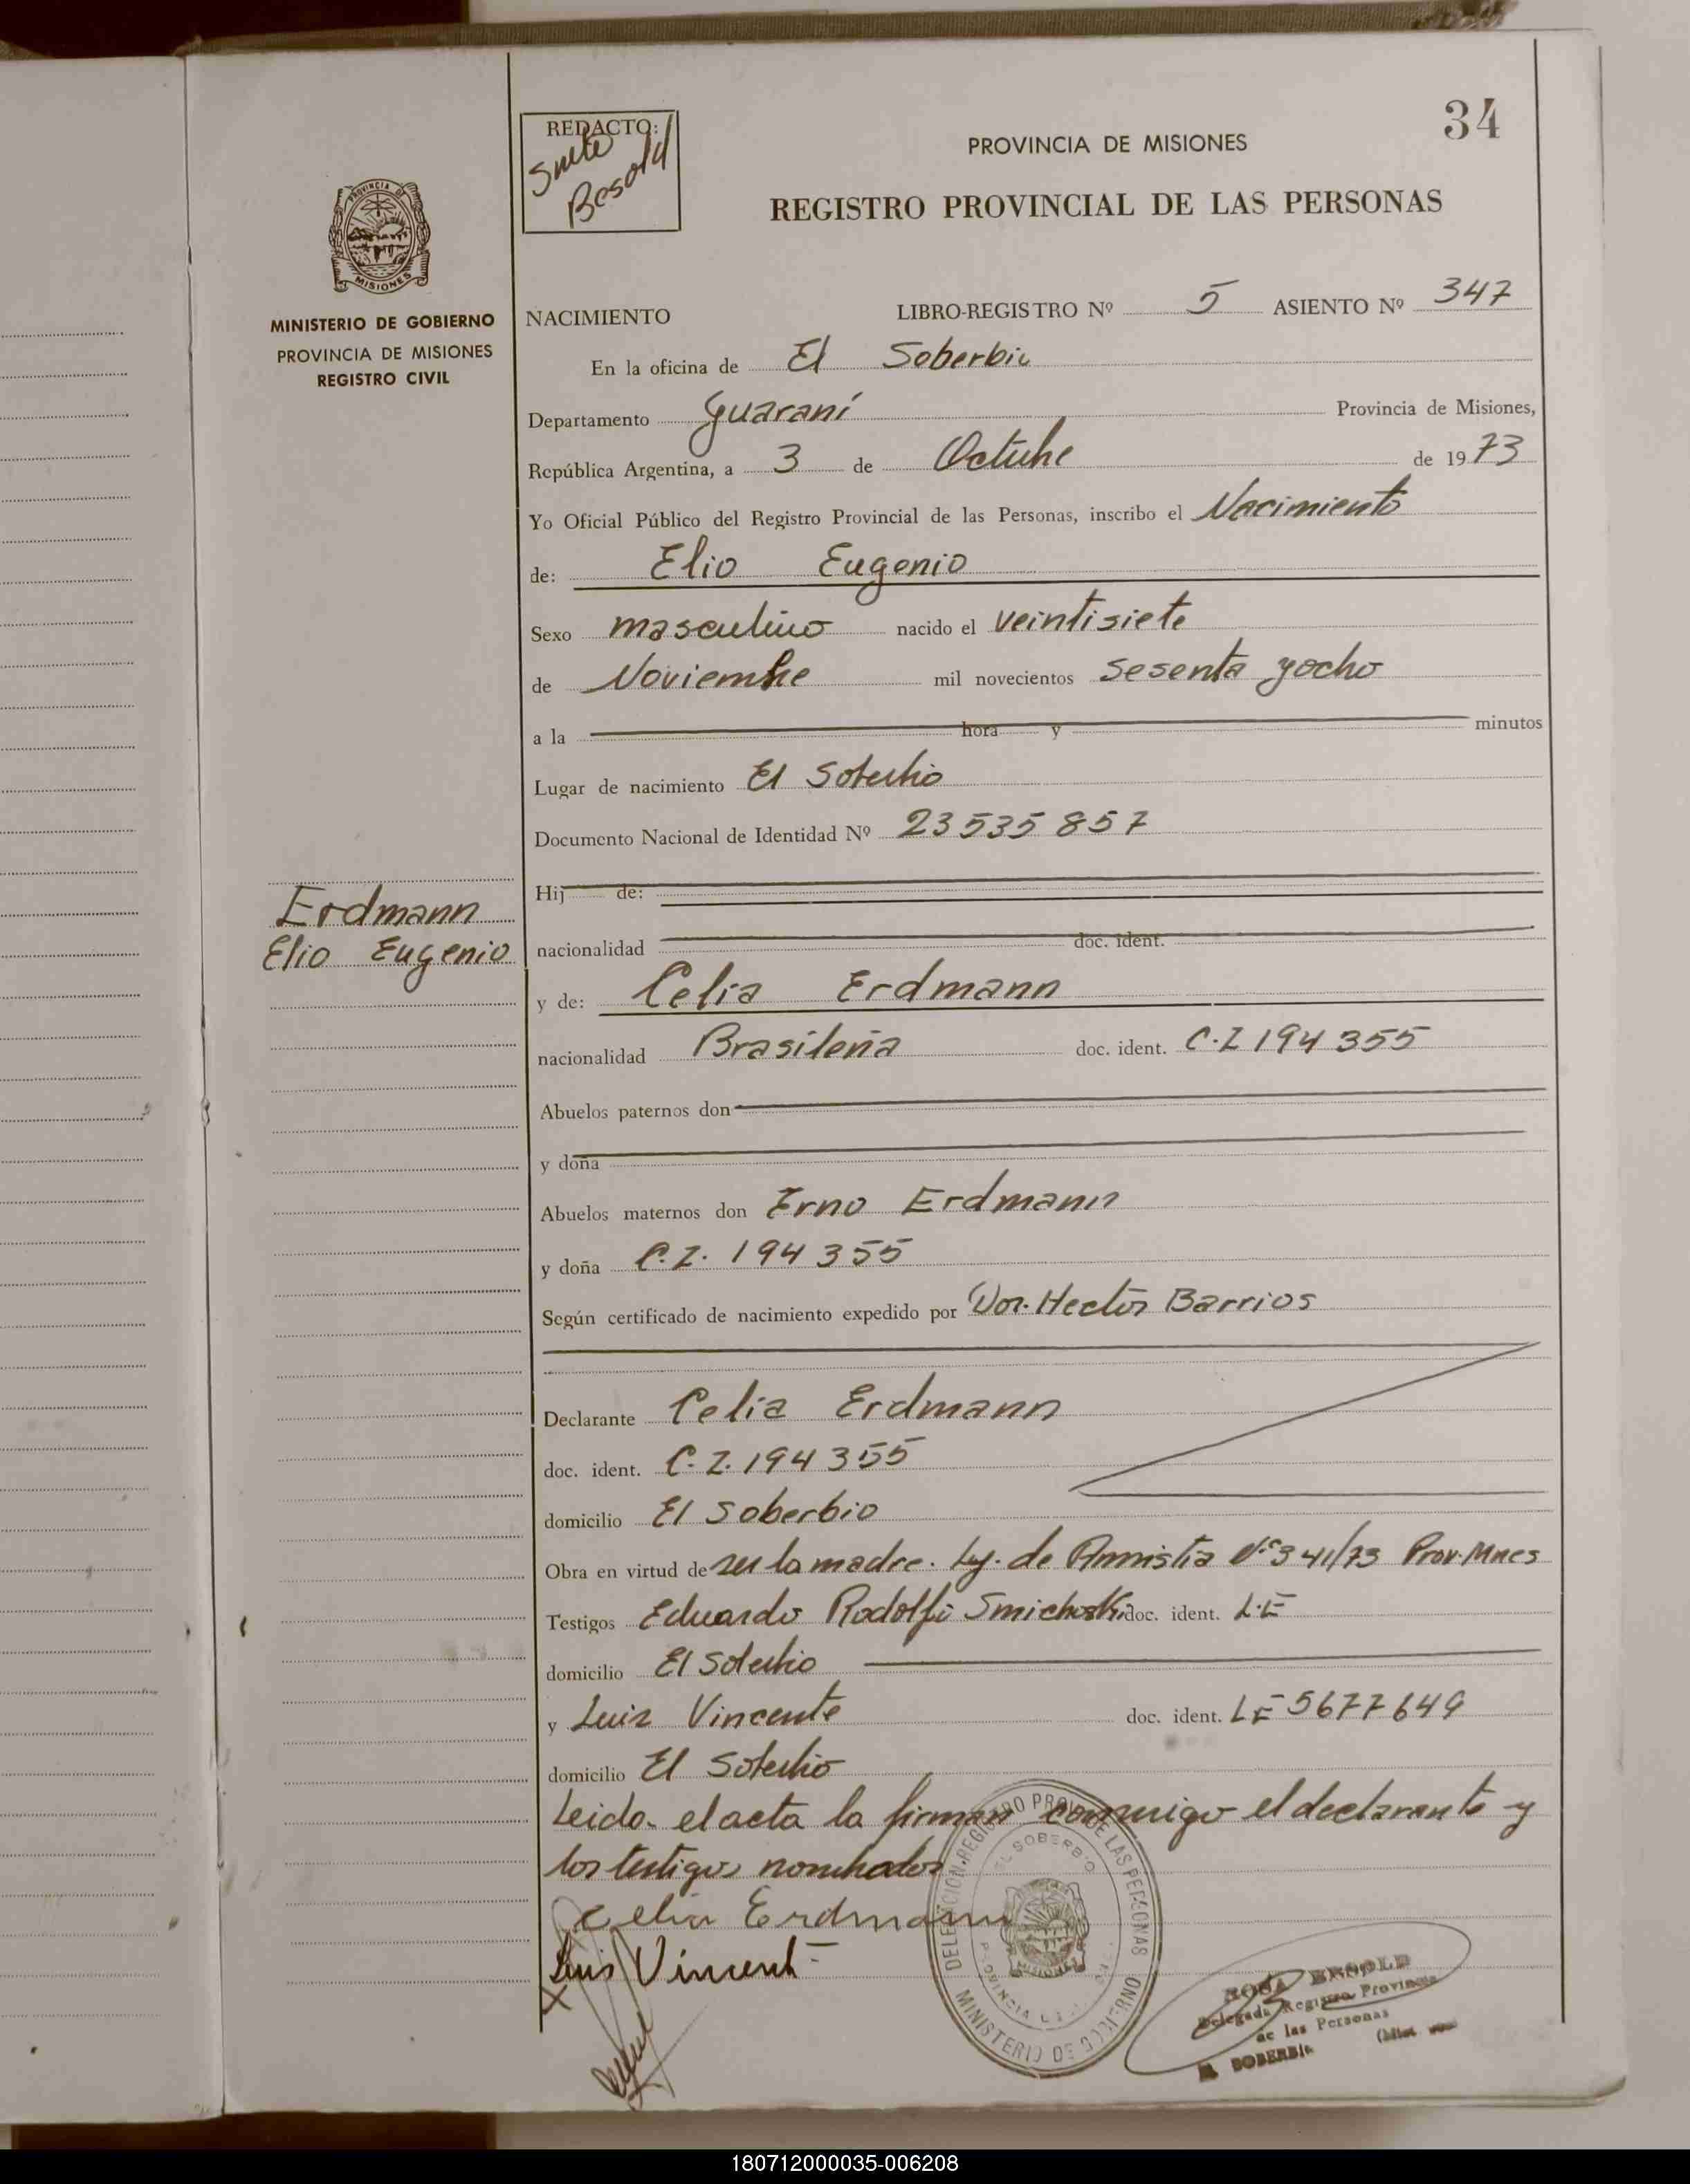 34
REDACTO:
Besold
PROVINCIA DE MISIONES
REGISTRO PROVINCIAL DE LAS PERSONAS
PROVINCIA DE
MISIONES
MINISTERIO DE GOBIERNO
PROVINCIA DE MISIONES
REGISTRO CIVIL
NACIMIENTO LIBRO-REGISTRO Nº 5 ASIENTO Nº 347
En la oficina de El Soberbio
Departamento Guaraní Provincia de Misiones,
República Argentina, a 3 de Octubre de 1973
Yo Oficial Público del Registro Provincial de las Personas, inscribo el Nacimiento
de: Elio Eugenio
Sexo masculino nacido el veintisiete
de Noviembre mil novecientos sesenta y ocho
a la hora y minutos
Lugar de nacimiento El Soberbio
Documento Nacional de Identidad Nº 23 535 857
Hij de:
Erdmann
Elio Eugenio
nacionalidad doc. ident.
y de: Celia Erdmann
nacionalidad Brasileña doc. ident. C.I 194 355
Abuelos paternos don
y doña
Abuelos maternos don Erno Erdmann
y doña C.I. 194 355
Según certificado de nacimiento expedido por Dor. Hector Barrios
Declarante Celia Erdmann
doc. ident. C.I. 194 355
domicilio El Soberbio
Obra en virtud de ser la madre. Ley. de Amnistia Nº 341/73 Prov. Mnes
Testigos Eduardo Rodolfo doc. ident. L.E
domicilio El Soberbio
y Luis Vincente doc. ident. LE 5677649
domicilio El Soberbio
Leido el acta la firman conmigo el declarante y
los testigos nombrados
Celia Erdmann
Luis Vincent
DELEGACION REGISTRO PROV. DE LAS PERSONAS
EL SOBERBIO
MISIONES
PROVINCIA DE
MINISTERIO DE GOBIERNO
ROSA BESOLD
Delegada Registro Provincial
de las Personas
EL SOBERBIO
180712000035-006208